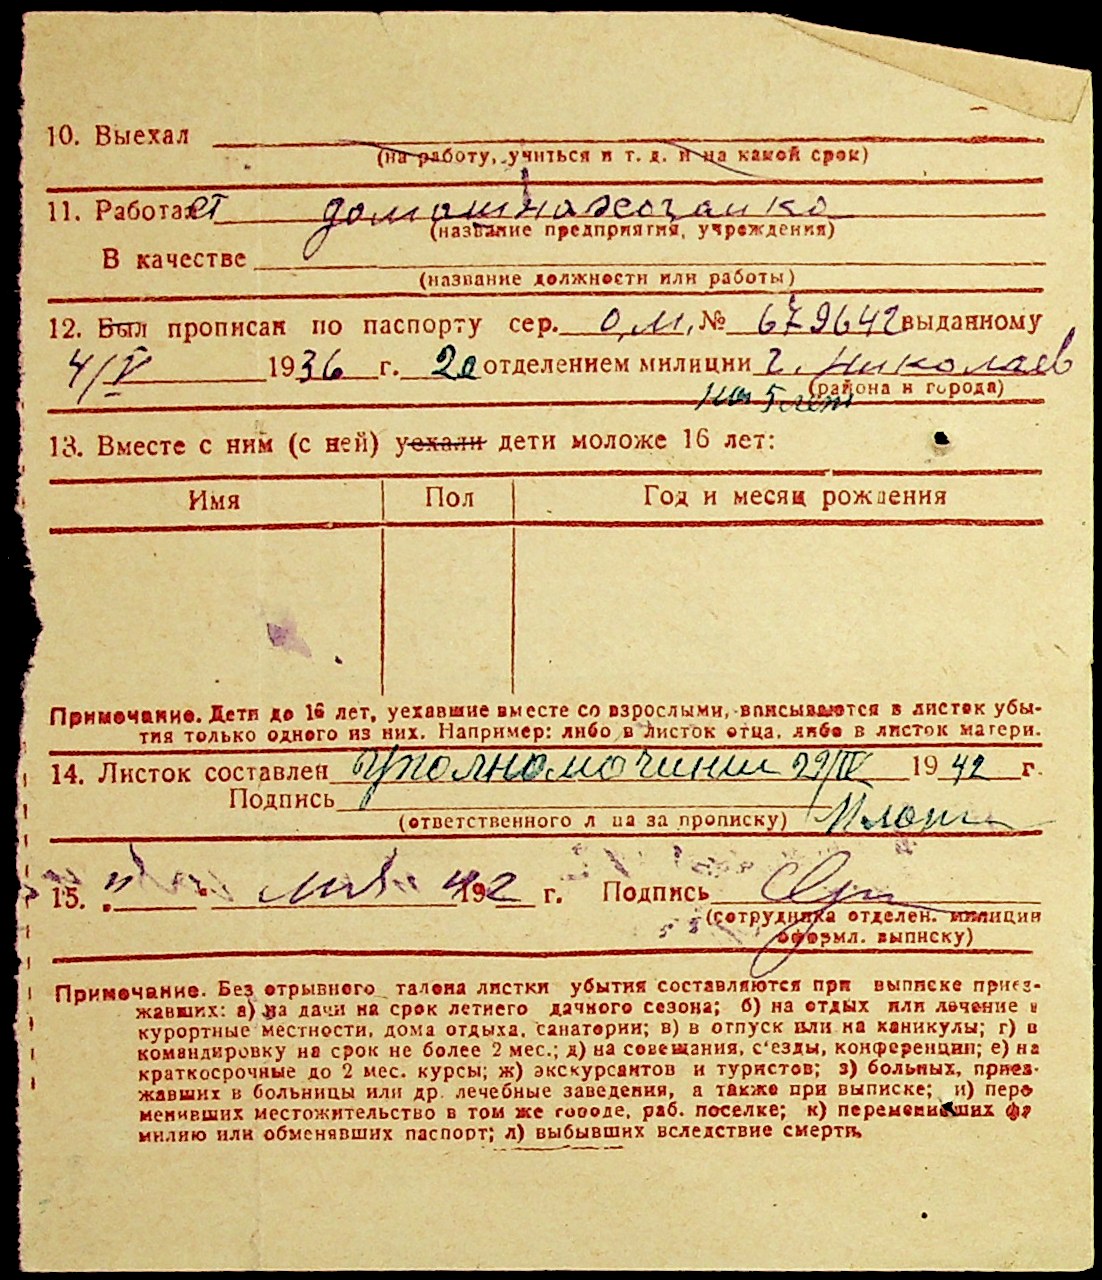 10. Выехал
(на работу, учиться и т. д. и на какой срок)
11. Работает домашнахозаика
(название предприятия, учреждения)
В качестве
(название должности или работы)
12. Был прописан по паспорту сер. О, М, № 679642 выданному
4/V 1936 г. 20 отделением милиции г. Николаев
(района и города)
на 5 лет
13. Вместе с ним (с ней) уехали дети моложе 16 лет:
Имя Пол Год и месяц рождения
Примечание. Дети до 16 лет, уехавшие вместе со взрослыми, вписываются в листок убы-
тия только одного из них. Например: либо в листок отца, либо в листок матери.
14. Листок составлен 29/IV 1942 г.
Подпись
(ответственного л ца за прописку)
15. " " 1942 г. Подпись
(сотрудника отделен. милиции
оформл. выписку)
Примечание. Без отрывного талона листки убытия составляются при выписке приез-
жавших: а) на дачи на срок летнего дачного сезона; б) на отдых или лечение в
курортные местности, дома отдыха, санатории; в) в отпуск или на каникулы; г) в
командировку на срок не более 2 мес.; д) на совещания, с'езды, конференции; е) на
краткосрочные до 2 мес. курсы; ж) экскурсантов и туристов; з) больных, приез-
жавших в больницы или др. лечебные заведения, а также при выписке; и) пере
менивших местожительство в том же городе, раб. поселке; к) переменивших фа
милию или обменявших паспорт; л) выбывших вследствие смерти.